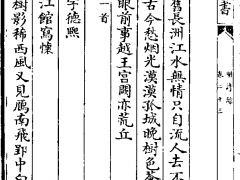 書
卷二十三
舊長洲江水無情只自流人去不
古今愁烟光漠漠孤城晚樹色蒼
眼前事越王宮闕亦荒丘
一首
字德熙
江館寫懷
樹影稀西風又見雁南飛郢中白